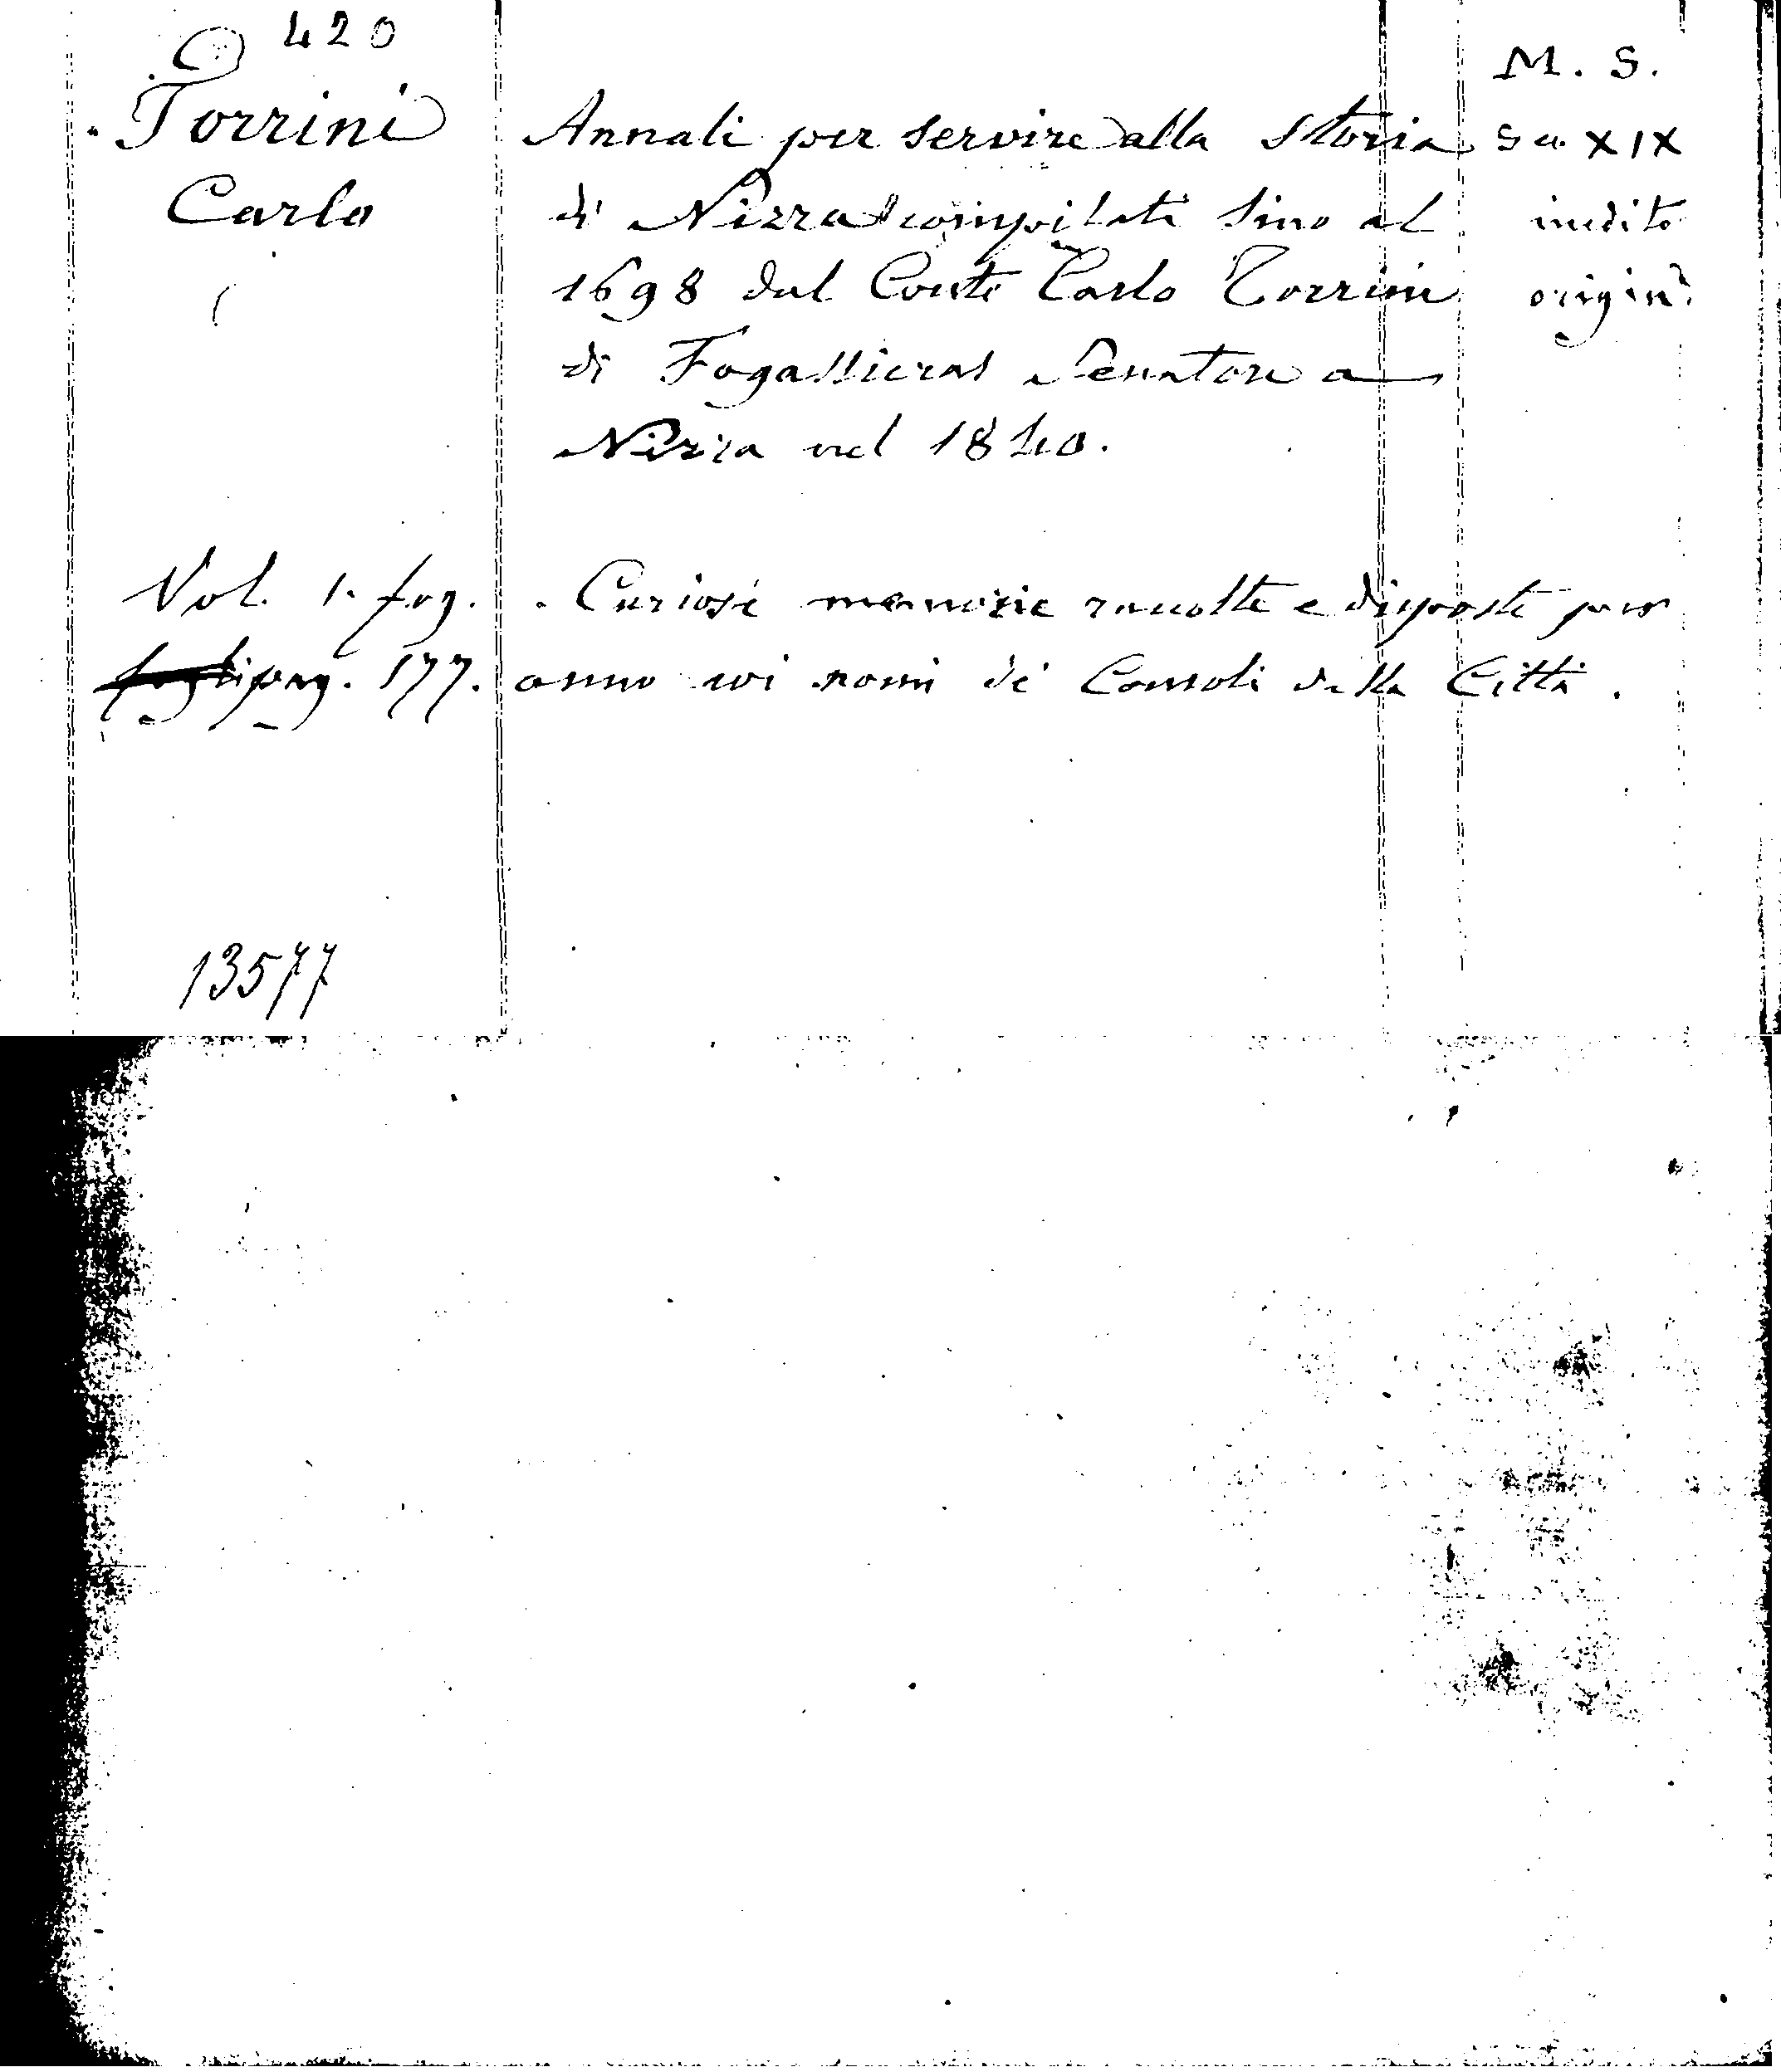 420
Torrini
Carlo
Annali per servire alla Storia
di Nizza compilati sino al
1698 dal Conte Carlo Torrini
di Fogassieras Senatore a
Nizza nel 1840.
M. S.
Sec. XIX
inedito
origin.
Vol. 1. fog.
pag. 177.
Curiose memorie raccolte e disposte per
anno coi nomi de' Consoli della Città.
13577